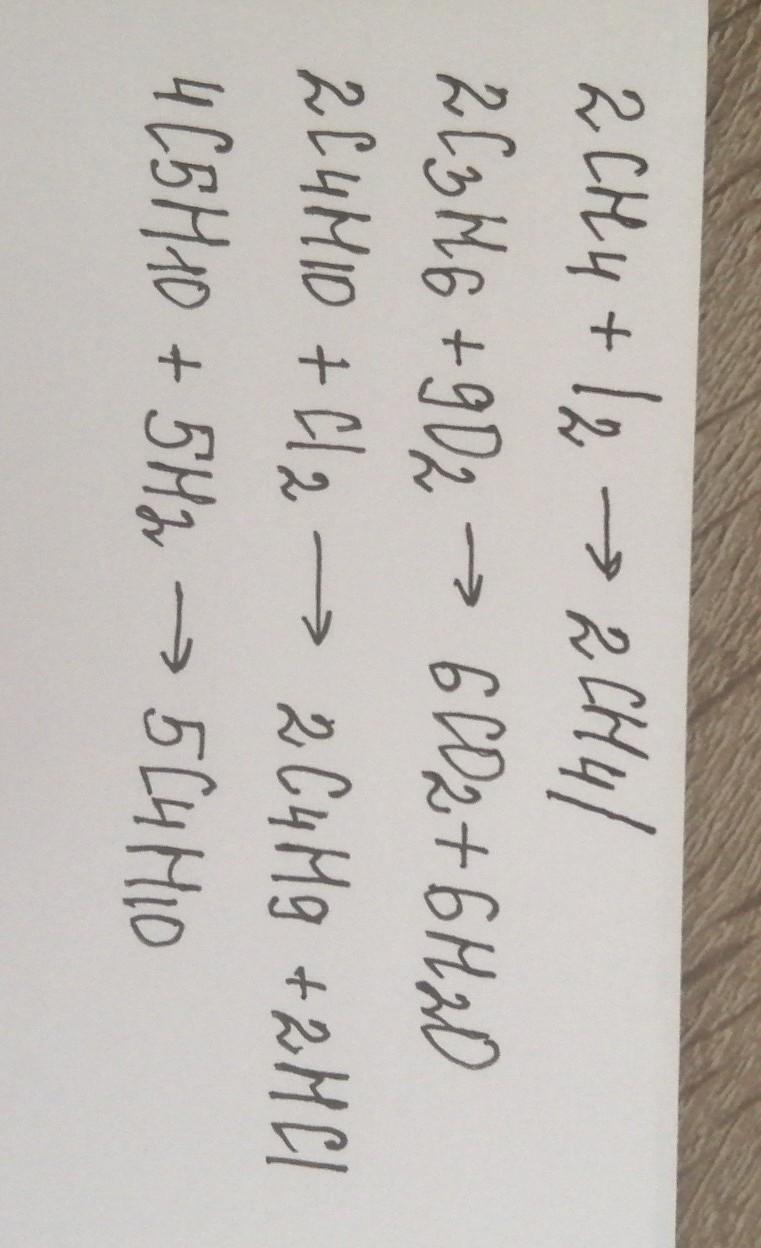 2CH4 + I2 → 2CH4I
2C3H6 + 9O2 → 6CO2 + 6H2O
2C4H10 + Cl2 → 2C4H9 + 2HCl
4C5H10 + 5H2 → 5C4H10